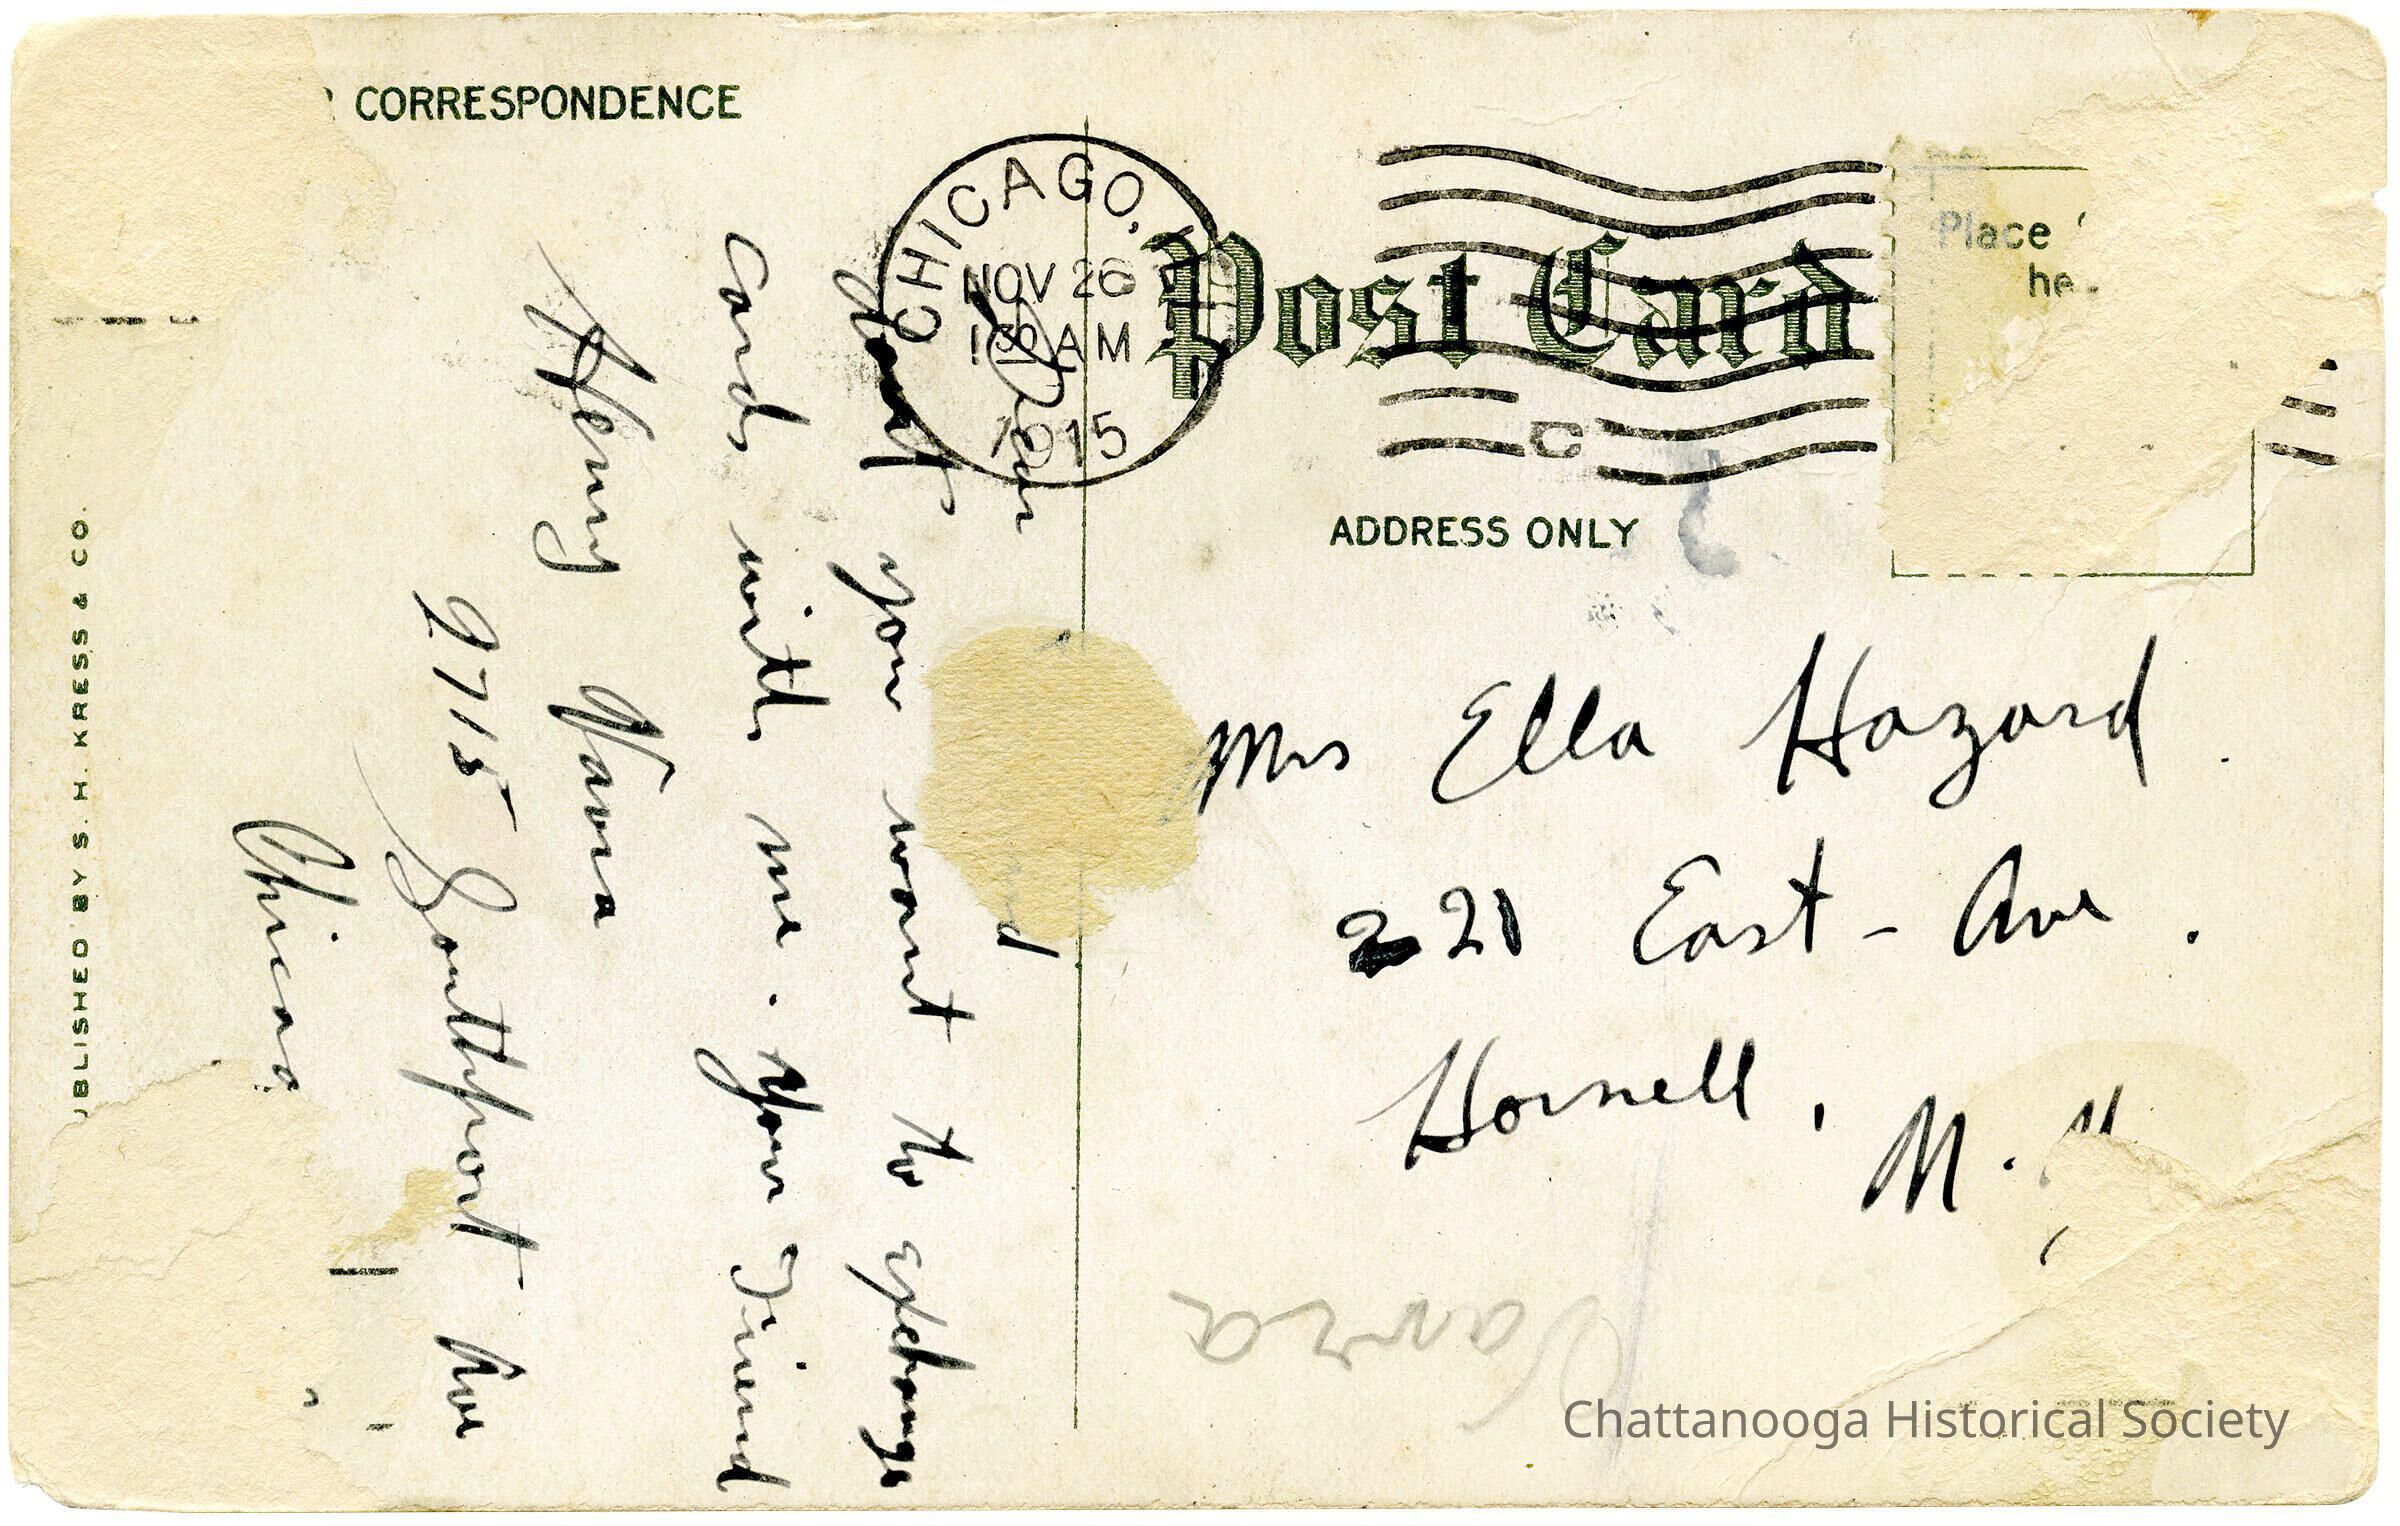 CORRESPONDENCE
CHICAGO,
NOV 26
1 30 AM
1915
Post Card
Place
ADDRESS ONLY
Mrs Ella Hazard.
221 East-Ave.
Hornell, N.
Dear
don't you want to exchange
cards with me. Your Friend
Henry
2715 Southport Ave
Chicago
BLISHED BY S. H. KRESS & CO.
Chattanooga Historical Society